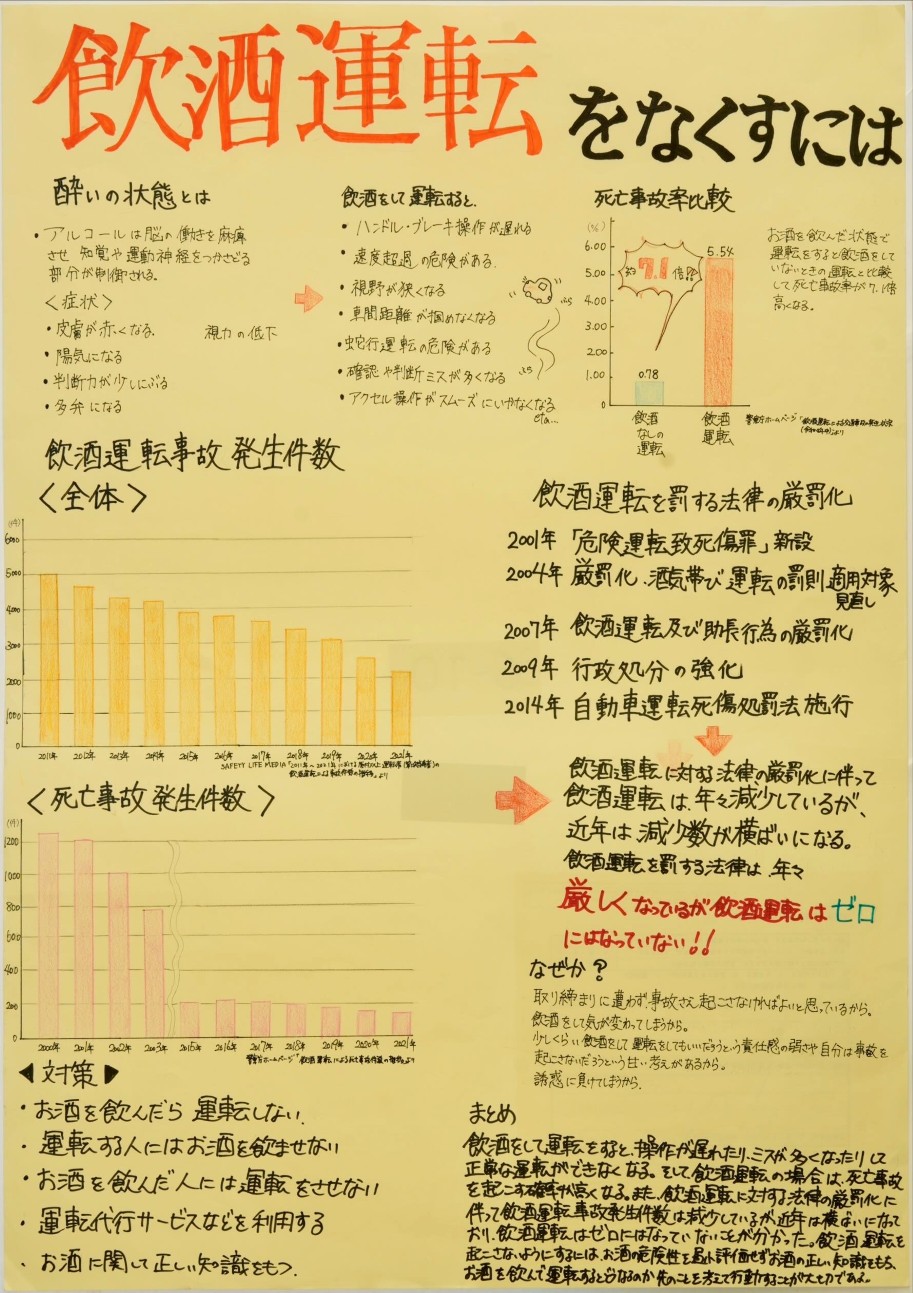 飲酒運転をなくすには
酔いの状態とは
・アルコールは脳の働きを麻痺
させ 知覚や運動神経をつかさどる
部分が制御される。
〈症状〉
・皮膚が赤くなる. 視力の低下
・陽気になる
・判断力が少しにぶる
・多弁になる
飲酒をして運転すると、
・ハンドル・ブレーキ操作が遅れる
・速度超過の危険がある.
・視野が狭くなる
・車間距離が掴めなくなる
・蛇行運転の危険がある
・確認や判断ミスが多くなる
・アクセル操作がスムーズにいかなくなる
etc...
死亡事故率比較
(%)
6.00
5.00
4.00
3.00
2.00
1.00
0
約7.1倍!!
0.78
5.54
飲酒
なしの
運転
飲酒
運転
お酒を飲んだ状態で
運転をすると飲酒をして
いないときの運転と比較
して死亡事故率が7.1倍
高くなる。
警察庁ホームページ
飲酒運転事故発生件数
〈全体〉
(件)
6000
5000
4000
3000
2000
1000
0
2011年 2012年 2013年 2014年 2015年 2016年 2017年 2018年 2019年 2020年 2021年
SAFETY LIFE MEDIA「2011年〜2021年における
飲酒運転による事故件数の推移」より
〈死亡事故発生件数〉
(件)
1200
1000
800
600
400
200
0
2000年 2001年 2002年 2003年 2015年 2016年 2017年 2018年 2019年 2020年 2021年
警察庁ホームページ「飲酒運転による死亡事故件数の推移」より
飲酒運転を罰する法律の厳罰化
2001年「危険運転致死傷罪」新設
2004年 厳罰化.酒気帯び運転の罰則適用対象
見直し
2007年 飲酒運転及び助長行為の厳罰化
2009年 行政処分の強化
2014年 自動車運転死傷処罰法施行
飲酒運転に対する法律の厳罰化に伴って
飲酒運転は、年々減少しているが、
近年は減少数が横ばいになる。
飲酒運転を罰する法律は.年々
厳しくなっているが飲酒運転はゼロ
にはなっていない!!
なぜか?
取り締まりに遭わず、事故さえ起こさなければよいと思っているから。
飲酒をして気が変わってしまうから。
少しくらい飲酒をして運転をしてもいいだろうという責任感の弱さや自分は事故を
起こさないだろうという甘い考えがあるから。
誘惑に負けてしまうから.
◀対策▶
・お酒を飲んだら運転しない.
・運転する人にはお酒を飲ませない
・お酒を飲んだ人には運転をさせない
・運転代行サービスなどを利用する
・お酒に関して正しい知識をもつ.
まとめ
飲酒をして運転をすると、操作が遅れたり、ミスが多くなったりして
正常な運転ができなくなる。そして飲酒運転の場合は、死亡事故
を起こす確率が高くなる。また、飲酒運転に対する法律の厳罰化に
伴って飲酒運転事故発生件数は減少しているが、近年は横ばいになって
おり、飲酒運転はゼロにはなっていないことが分かった。飲酒運転を
起こさないようにするには、お酒の危険性を過小評価せずお酒の正しい知識をもち、
お酒を飲んで運転するとどうなるのか先のことを考えて行動することが大切である。